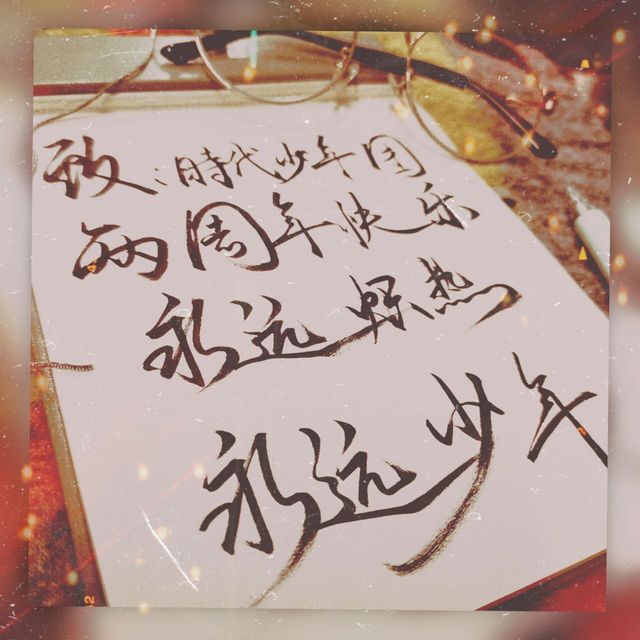 致：時代少年团
两周年快乐
永远炽热
永远少年
2